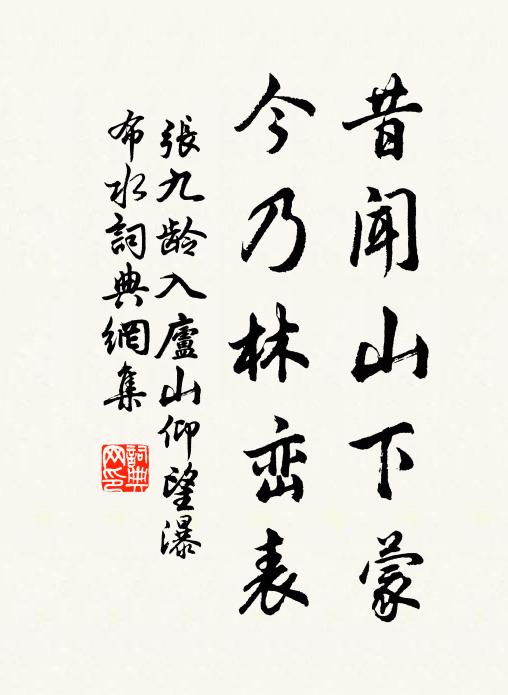 昔闻山下蒙
今乃林峦表
張九龄入廬山仰望瀑
布水詞典網集
詞典
网印